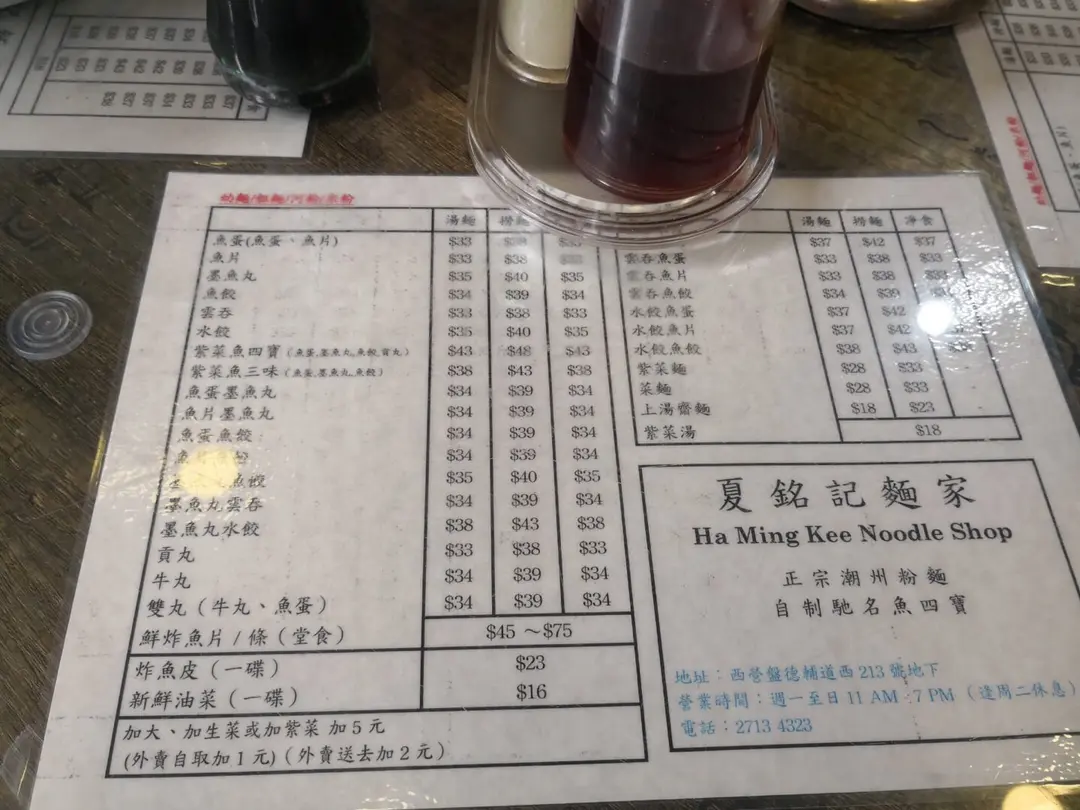 幼麵/粗麵/河粉/米粉
湯麵 捞麵
魚蛋(魚蛋、魚片) $33 $38 $33
魚片 $33 $38
墨魚丸 $35 $40 $35
魚餃 $34 $39 $34
雲吞 $33 $38 $33
水餃 $35 $40 $35
紫菜魚四寶(魚蛋,墨魚丸,魚餃,貢丸) $43 $48 $43
紫菜魚三味(魚蛋,墨魚丸,魚餃) $38 $43 $38
魚蛋墨魚丸 $34 $39 $34
魚片墨魚丸 $34 $39 $34
魚蛋魚餃 $34 $39 $34
$34 $39 $34
魚餃 $35 $40 $35
墨魚丸雲吞 $34 $39 $34
墨魚丸水餃 $38 $43 $38
貢丸 $33 $38 $33
牛丸 $34 $39 $34
雙丸(牛丸、魚蛋) $34 $39 $34
鮮炸魚片/條(堂食) $45 ~$75
炸魚皮(一碟) $23
新鮮油菜(一碟) $16
加大、加生菜或加紫菜 加5元
(外賣自取加1元)(外賣送去加2元)
湯麵 捞麵 净食
$37 $42 $37
雲吞魚蛋 $33 $38 $33
雲吞魚片 $33 $38 $33
雲吞魚餃 $34 $39
水餃魚蛋 $37 $42
水餃魚片 $37 $42
水餃魚餃 $38 $43 $38
紫菜麵 $28 $33
菜麵 $28 $33
上湯齋麵 $18 $23
紫菜湯 $18
夏銘記麵家
Ha Ming Kee Noodle Shop
正宗潮州粉麵
自制馳名魚四寶
地址：西營盤德輔道西213號地下
營業時間：週一至日 11 AM - 7 PM (逢周二休息)
電話：2713 4323